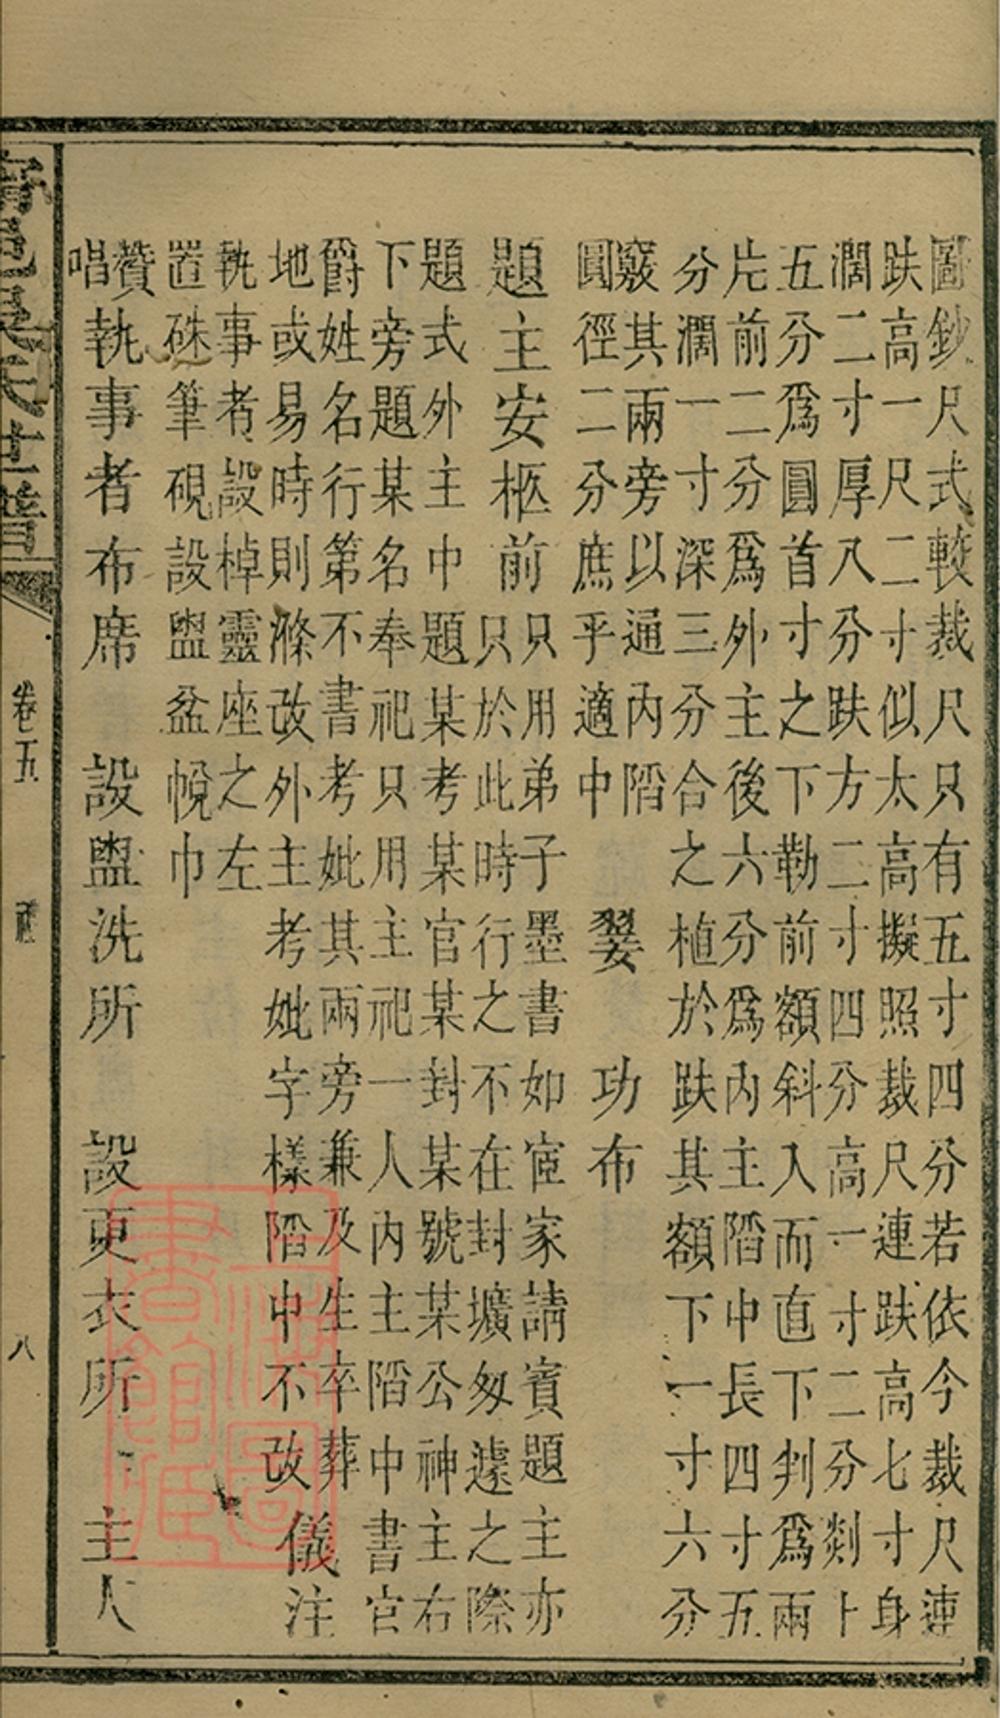 圖鈔尺式較裁尺只有五寸四分若依今裁尺連
趺高一尺二寸似太高擬照裁尺連趺高七寸身
濶二寸厚八分趺方二寸四分高一寸二分剡上
五分爲圓首寸之下勒前額斜入而直下判爲兩
片前二分爲外主後六分爲內主陷中長四寸五
分濶一寸深三分合之植於趺其額下一寸六分
竅其兩旁以通內陷
圓徑二分庶乎適中
翣
功布
題主安柩前
只用弟子墨書如宦家請賓題主亦
只於此時行之不在封壙匆遽之際
題式外主中題某考某官某封某號某公神主右
下旁題某名奉祀只用主祀一人內主陷中書官
爵姓名行第不書考妣其兩旁兼及生卒葬
地或易時則滌改外主考妣字樣陷中不改
儀注
執事者設棹靈座之左
置硃筆硯設盥盆帨巾
贊唱
執事者布席　設盥洗所　設更衣所　主人
世譜
卷五
八